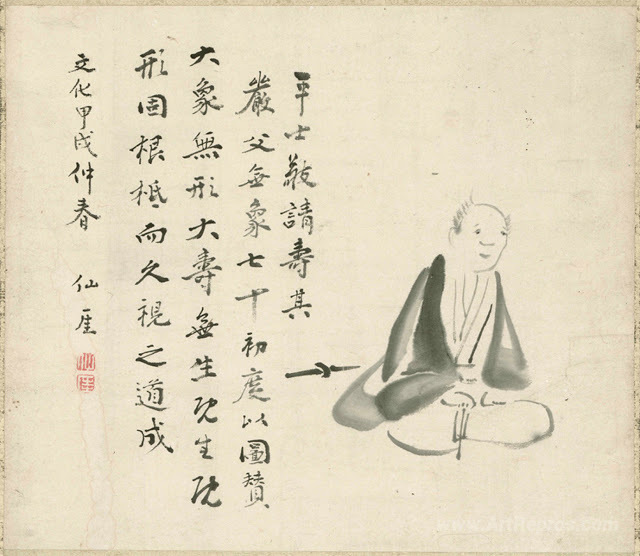 平士敬請壽其
嚴父無象七十初度以圖贊
大象無形大壽無生既生既
形固根柢而久視之道成
文化甲戌仲春 仙厓
仙厓